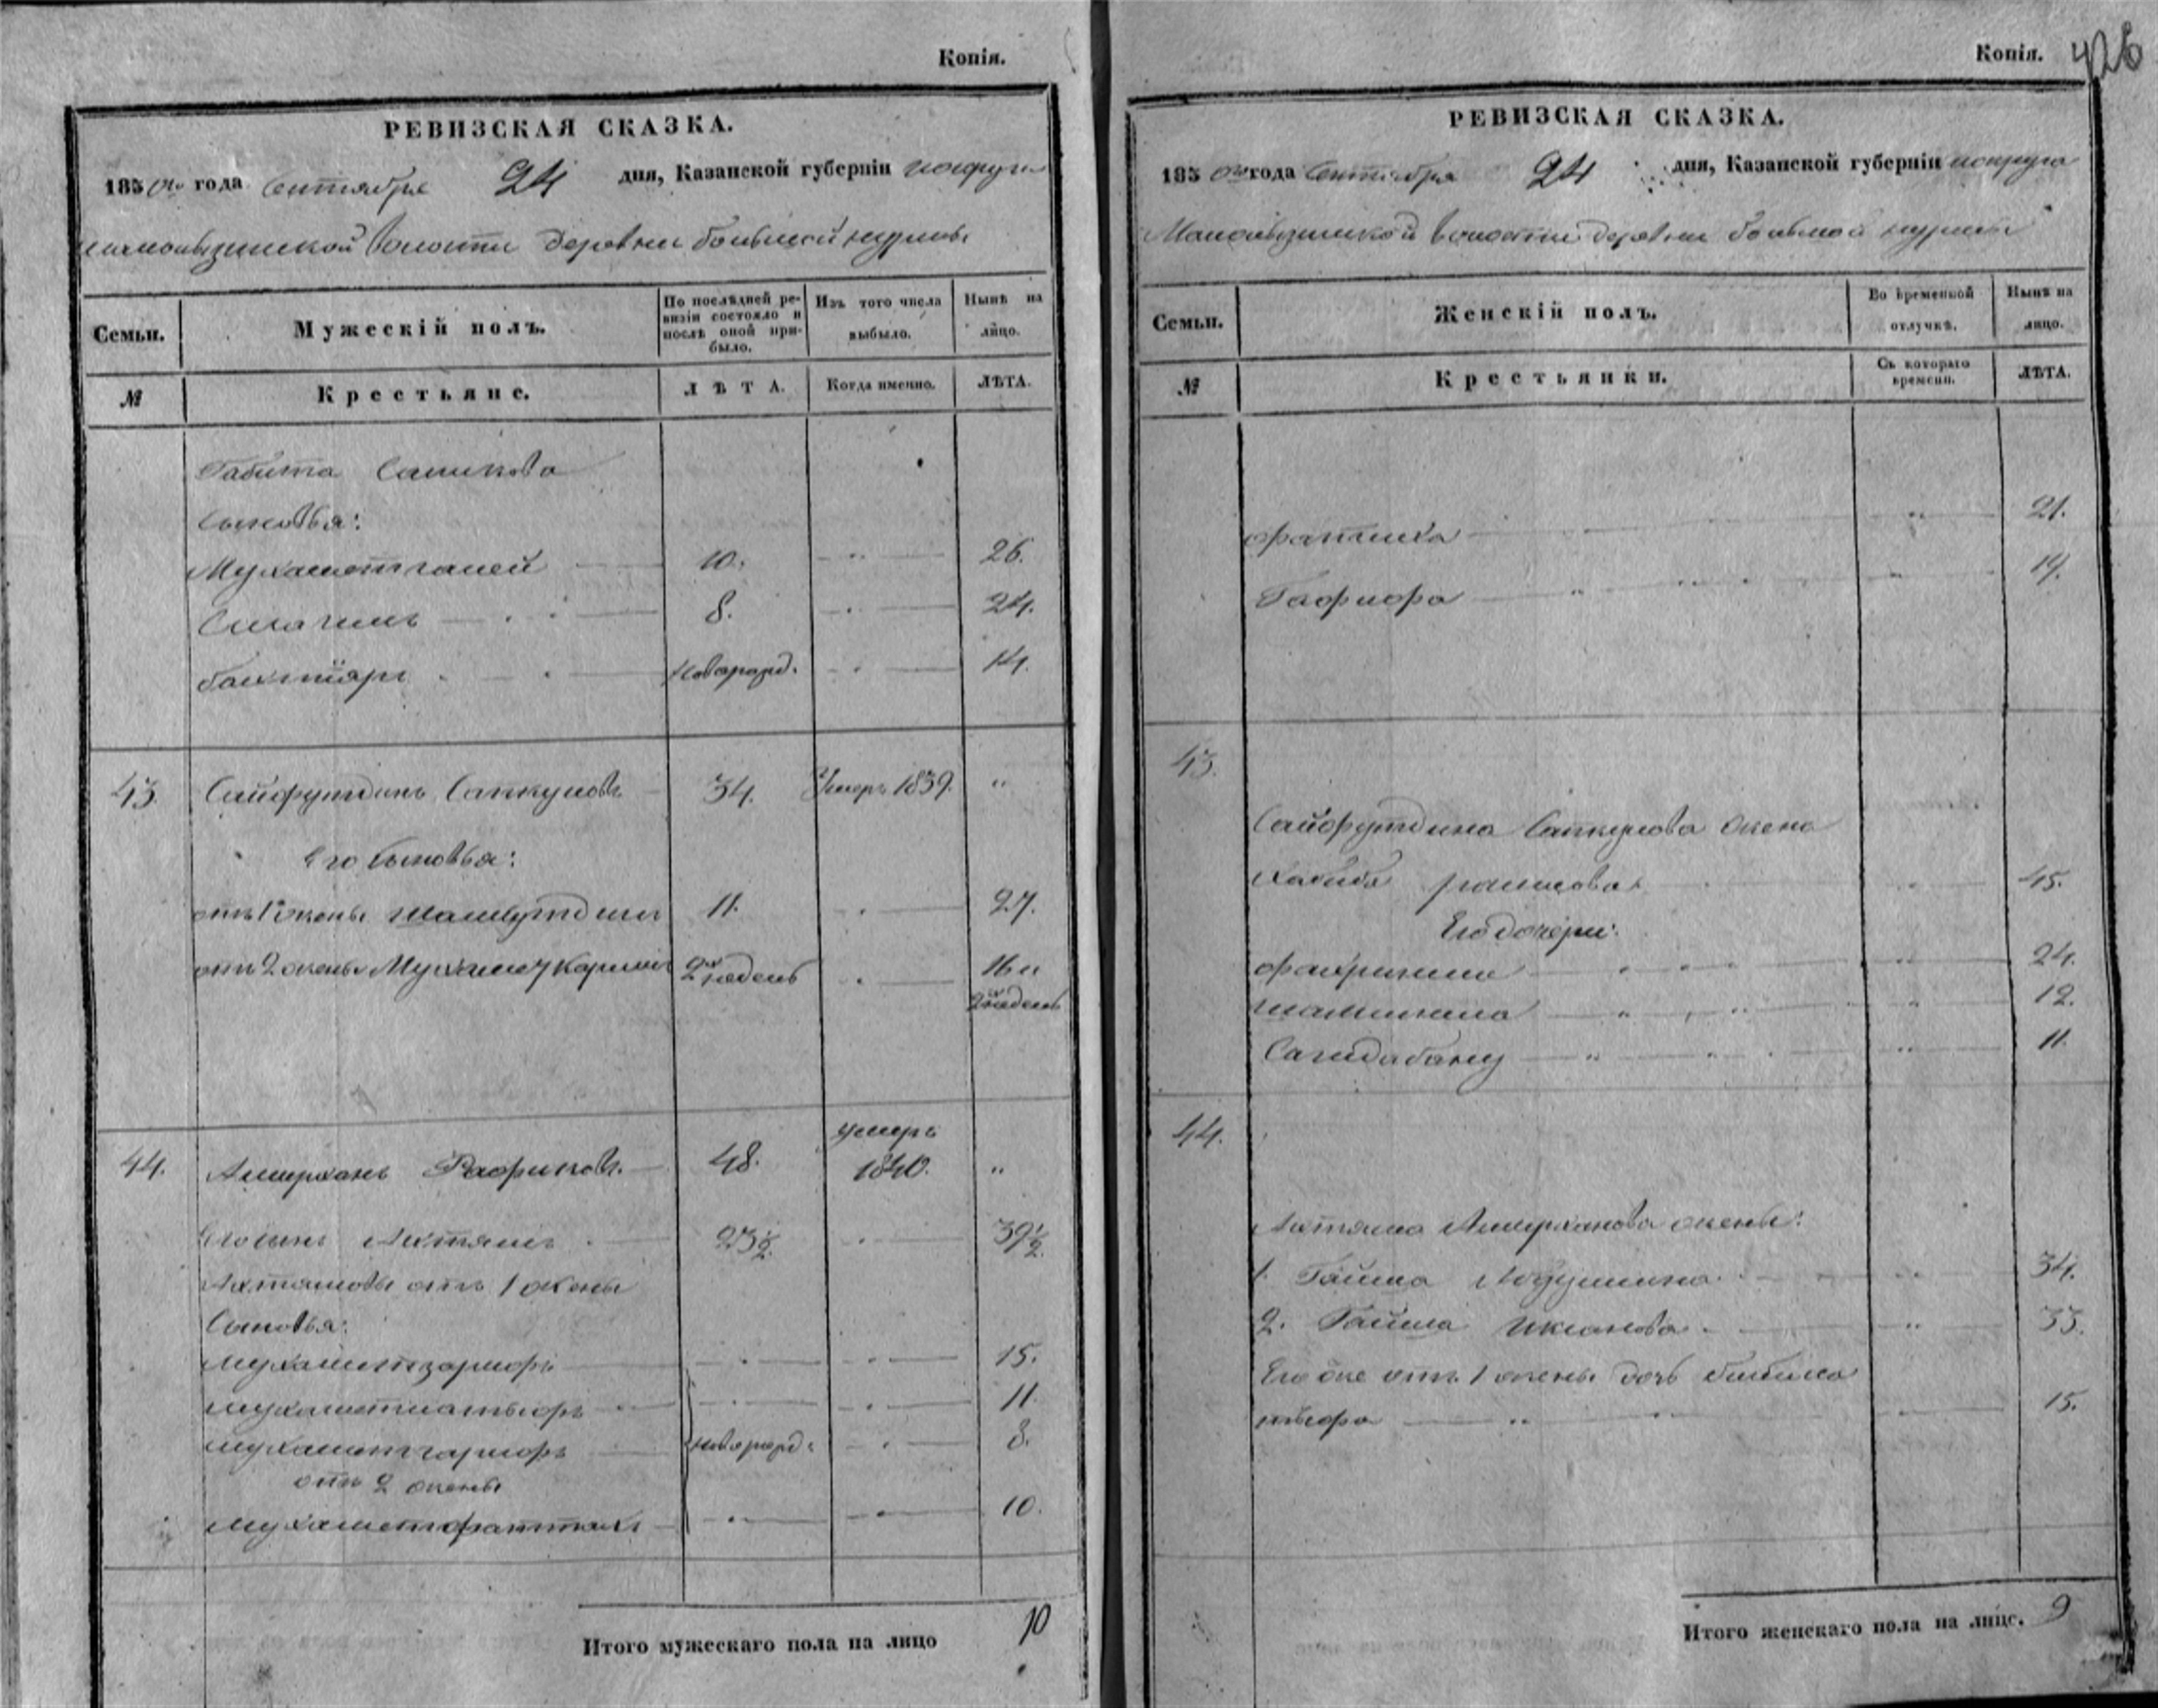 Копія.
РЕВИЗСКАЯ СКАЗКА.
1850го года Сентября 24 дня, Казанской губерніи
волости деревни большой
Семьи. Мужескій полъ. По послѣдней ревизіи состояло и послѣ оной прибыло. Изъ того числа выбыло. Нынѣ на лицо.
№ Крестьяне. ЛѢТА. Когда именно. ЛѢТА.
Габита
Сыновья:
Мухаметганей 10. 26.
Смагилъ 8. 24.
бахтіяръ новорожд. 14.
43. Сайфутдинъ Сапкуловъ 34. Умеръ 1839. "
Его Сыновья:
отъ 1й жены 11. 27.
отъ 2 жены Мухамеч Каримъ 2хъ недель 16 и
2хъ недель
44. Амирханъ Рафиковъ. 48. умеръ 1840. "
Его сынъ Ахтямъ 23½ 39½.
Ахтямовы отъ 1 жены
Сыновья:
Мухаметзарифъ 15.
11.
мухаметгарифъ новорожд. 8.
отъ 2 жены
мухаметфаттахъ 10.
Итого мужескаго пола на лицо 10
Копія. 426
РЕВИЗСКАЯ СКАЗКА.
1850го года Сентября 24 дня, Казанской губерніи округа
волости деревни большой
Семьи. Женскій полъ. Во временной отлучкѣ. Нынѣ на лицо.
№ Крестьянки. Съ котораго времени. ЛѢТА.
Фатиха " 21.
Гафифа " 19.
43.
Сайфутдина Сапкулова жена
Хабиба 45.
Его дочери:
" 24.
" 12.
Сагидабану " 11.
44.
Ахтяма Амирханова жены:
1. Гайша " 34.
2. Гайша " 33.
Его же отъ 1 жены дочь
15.
Итого женскаго пола на лицо. 9